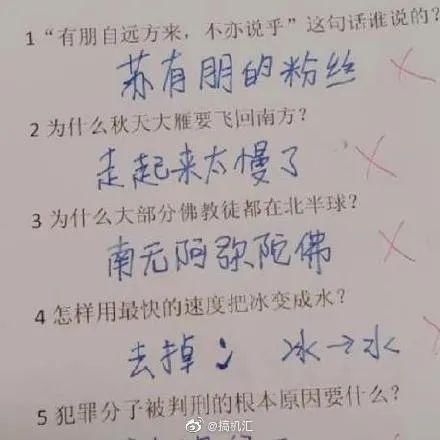 1 “有朋自远方来，不亦说乎”这句话谁说的？
苏有朋的粉丝
2 为什么秋天大雁要飞回南方？
走起来太慢了
3 为什么大部分佛教徒都在北半球？
南无阿弥陀佛
4 怎样用最快的速度把冰变成水？
去掉冫 冰→水
5 犯罪分子被判刑的根本原因要什么？
@搞机汇